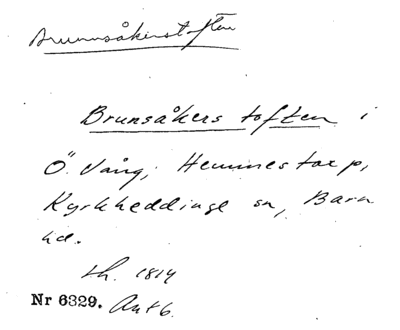 Brunnsåkerstoften
Brunsåkers toften i
Ö. Vång, Hemmestorp,
Kyrkheddinge sn, Bara
hd.
1814
Nr 6329. Ant 6.